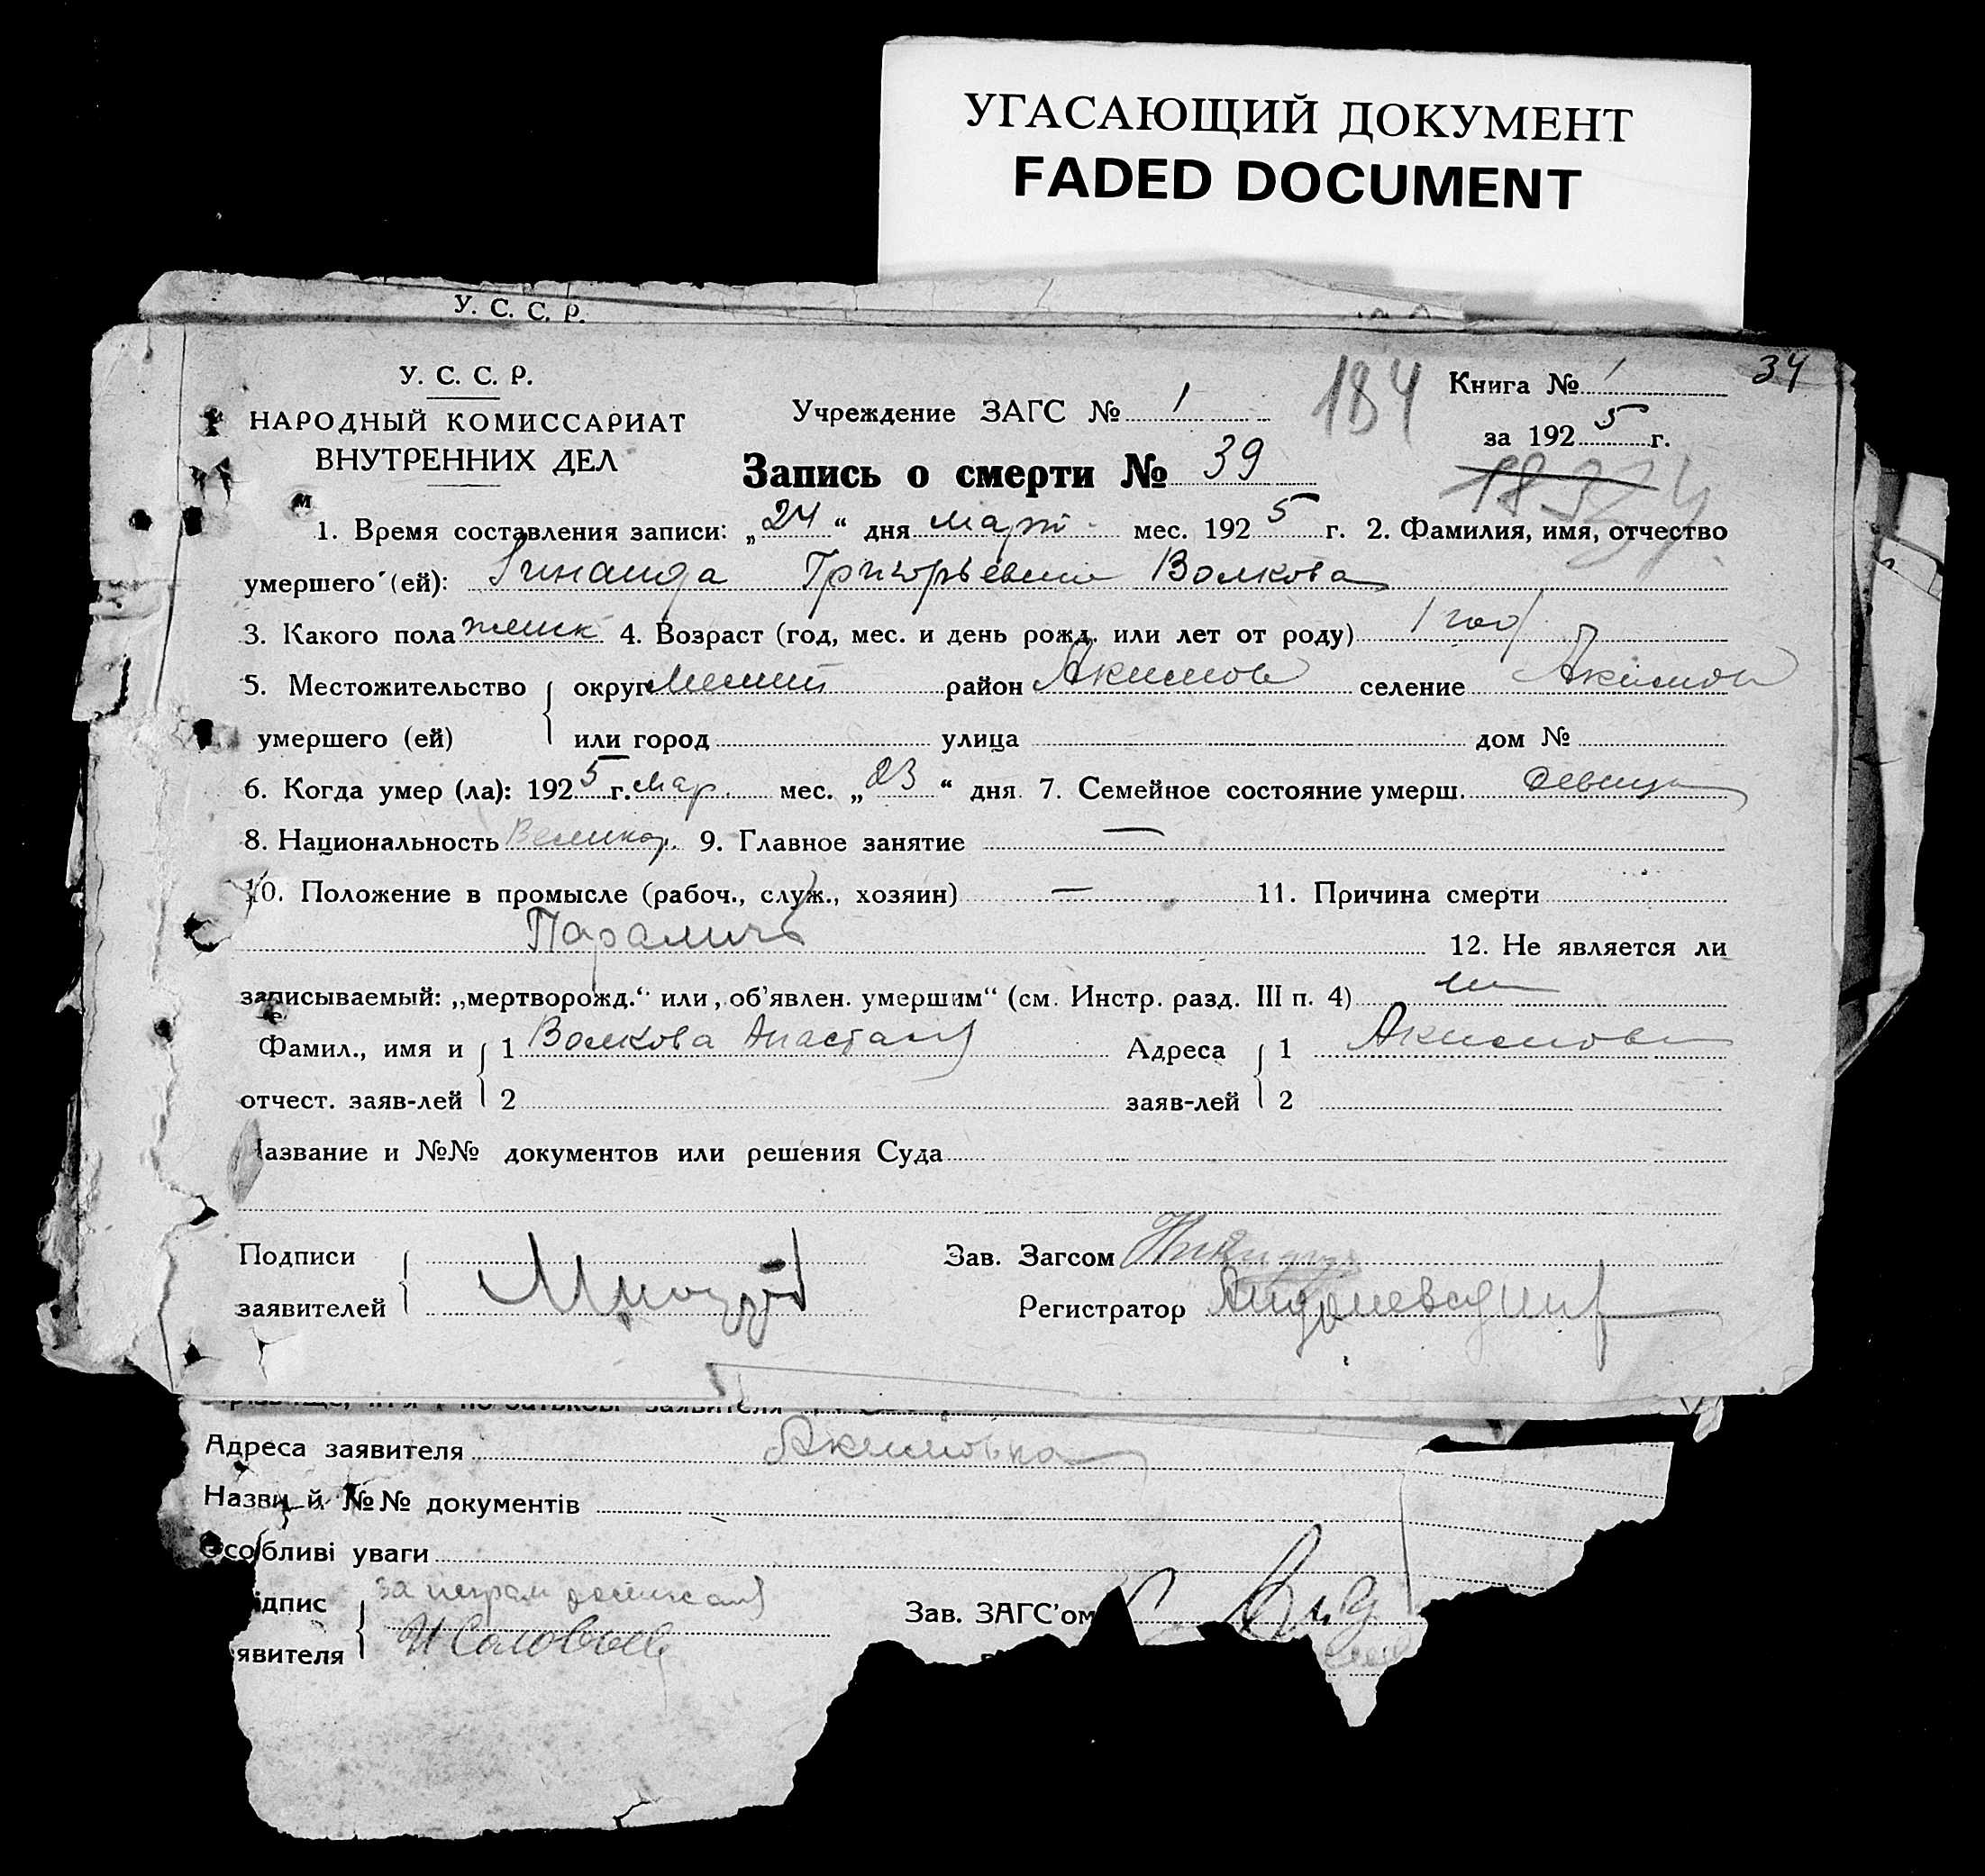 УГАСАЮЩИЙ ДОКУМЕНТ
FADED DOCUMENT
У. С. С. Р.
34
У. С. С. Р.
НАРОДНЫЙ КОМИССАРИАТ
ВНУТРЕННИХ ДЕЛ
Учреждение ЗАГС № 1
184
Книга № 1
за 1925 г.
Запись о смерти № 39
1. Время составления записи: „24“ дня март мес. 1925 г. 2. Фамилия, имя, отчество
умершего (ей): Зинаида Григорьевна Волкова
3. Какого пола женск 4. Возраст (год, мес. и день рожд. или лет от роду) 1 год
5. Местожительство округ район Акимов селение Акимов
умершего (ей) или город улица дом №
6. Когда умер (ла): 1925 г. мар. мес. „23“ дня 7. Семейное состояние умерш. девица
8. Национальность Великор. 9. Главное занятие —
10. Положение в промысле (рабоч., служ., хозяин) — 11. Причина смерти
Параличь 12. Не является ли
записываемый: „мертворожд.“ или „об'явлен. умершим“ (см. Инстр. разд. III п. 4)
Фамил., имя и 1 Волкова Анастасия Адреса 1 Акимовка
отчест. заяв-лей 2 заяв-лей 2
Название и №№ документов или решения Суда
Подписи Зав. Загсом
заявителей Регистратор
заявителя
Адреса заявителя Акимовка
Назви й №№ документів
Особливі уваги
ідпис за неграм
явителя И Соловьев
Зав. ЗАГС'ом